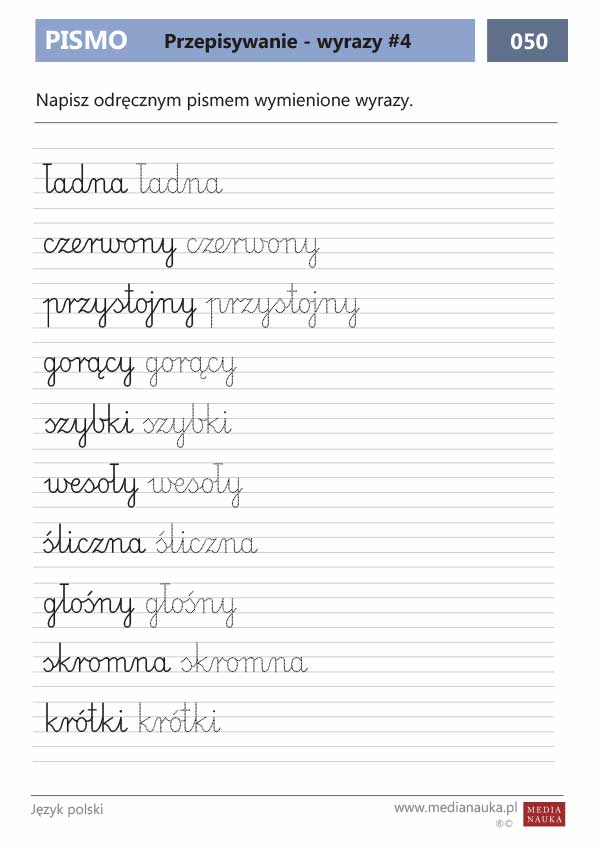 PISMO Przepisywanie - wyrazy #4 050
Napisz odręcznym pismem wymienione wyrazy.
ładna ładna
czerwony czerwony
przystojny przystojny
gorący gorący
szybki szybki
wesoły wesoły
śliczna śliczna
głośny głośny
skromna skromna
krótki krótki
Język polski www.medianauka.pl MEDIA
®© NAUKA